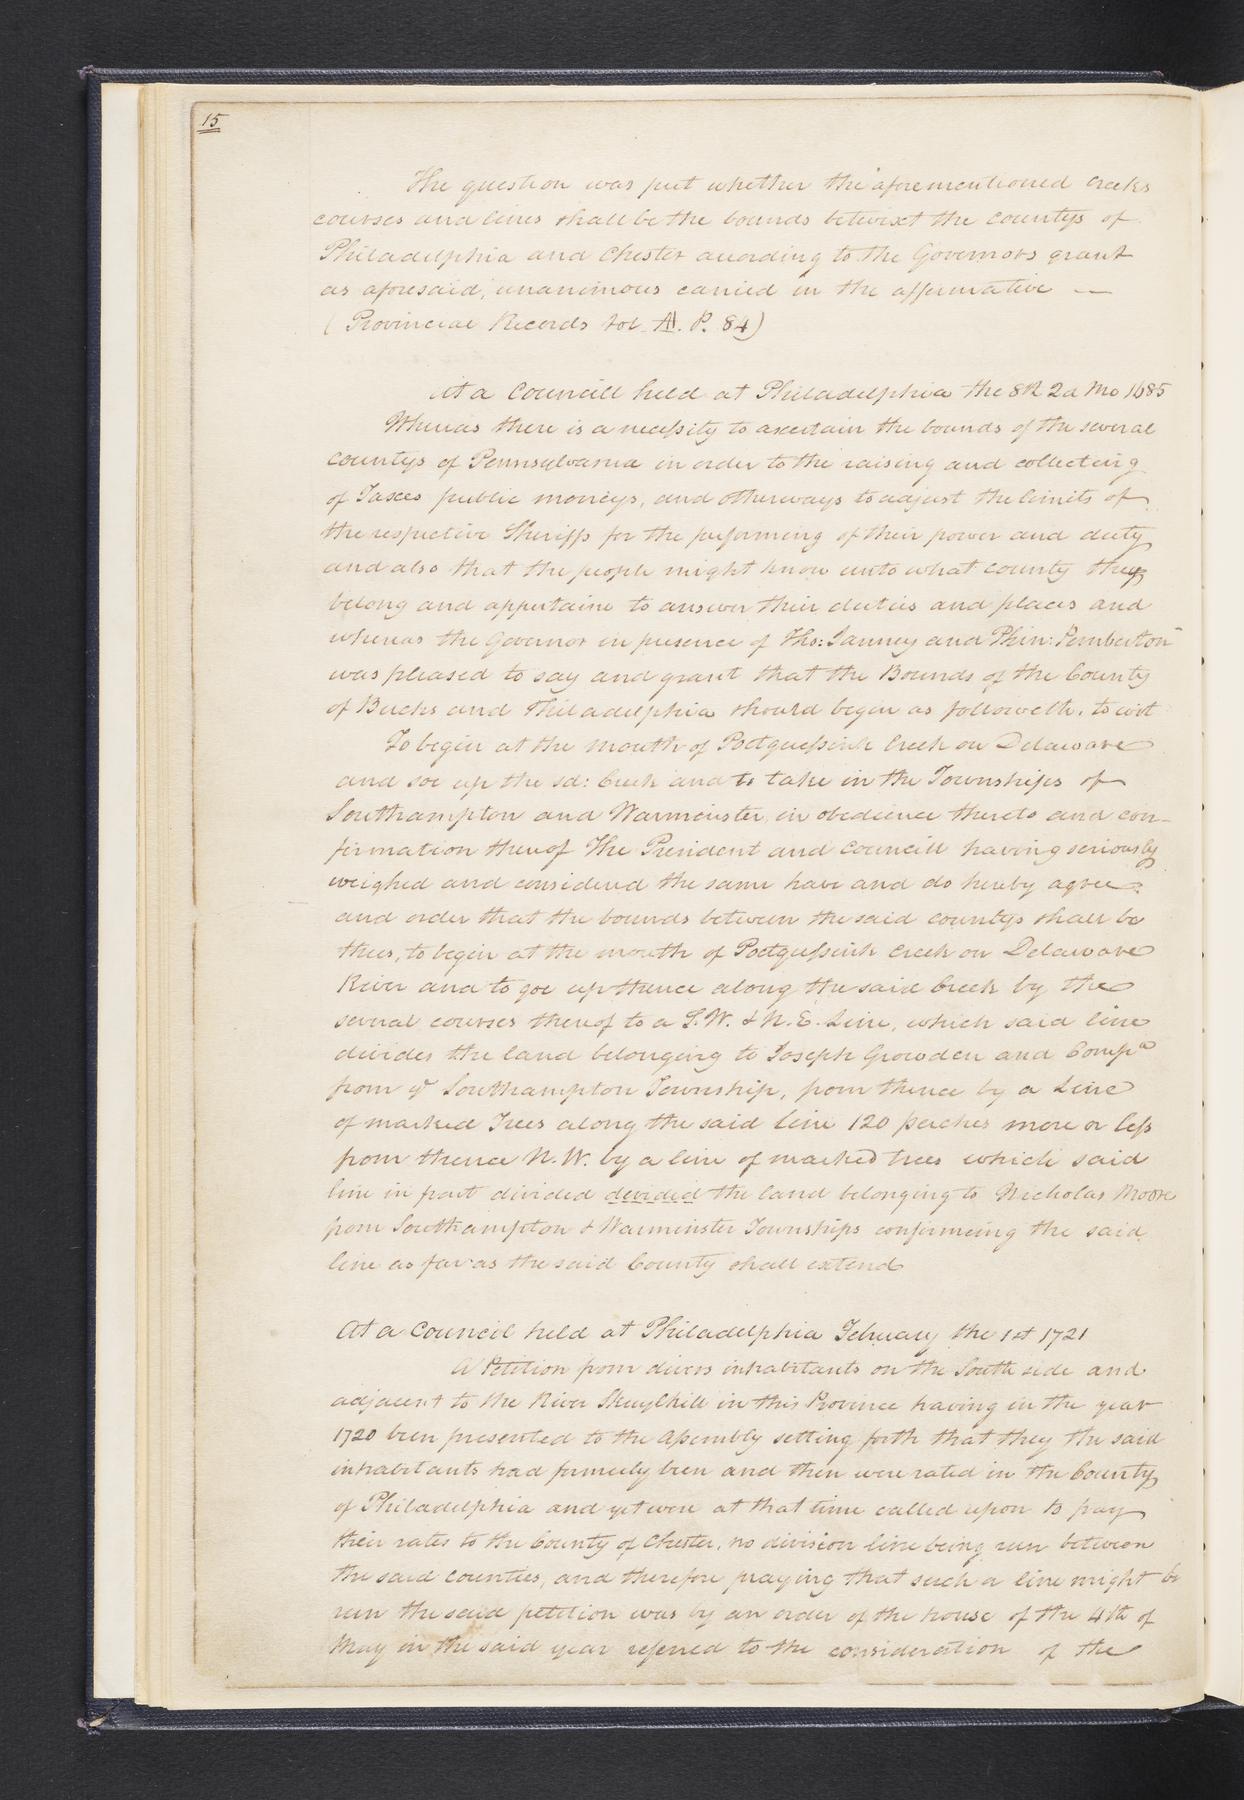 15
The question was put whether the aforementioned creeks
courses and lines shall be the bounds betwixt the countys of
Philadelphia and Chester according to the Governors grant
as aforesaid, unanimous carried in the affirmative —
(Provincial Records Vol. A. P. 84)
At a Councill held at Philadelphia the 8th 2d Mo 1685
Whereas there is a necessity to ascertain the bounds of the several
countys of Pennsylvania in order to the raising and collecting
of Taxes public moneys, and otherways to adjust the limits of
the respective Sheriffs for the performing of their power and duty
and also that the people might know unto what county they
belong and appertaine to answer their duties and places and
whereas the Governor in presence of Tho: Janney and Phin: Pemberton
was pleased to say and grant that the Bounds of the County
of Bucks and Philadelphia should begin as followeth. to wit
To begin at the mouth of Poetquessink Creek on Delaware
and soe up the sd: Creek and to take in the Townships of
Southampton and Warmenster, in obedience thereto and con-
firmation thereof The President and Councill having seriously
weighed and considered the same have and do hereby agree
and order that the bounds between the said countys shall be
thus, to begin at the mouth of Poetquessink Creek on Delaware
River and to goe up thence along the said Creek by the
several courses thereof to a S.W. & N.E. Line, which said line
divides the land belonging to Joseph Growden and Compa
from ye Southampton Township, from thence by a Line
of marked Trees along the said line 120 perches more or less
from thence N.W. by a line of marked trees which said
line in part divided devided the land belonging to Nicholas Moore
from Southampton & Warminster Townships confirmeing the said
line as far as the said County shall extend
At a Council held at Philadelphia February the 1st 1721
A Petition from divers inhabitants on the South side and
adjacent to the River Skuylkill in this Province having in the year
1720 been presented to the Assembly setting forth that they the said
inhabitants had formerly been and then were rated in the County
of Philadelphia and yet were at that time called upon to pay
their rates to the County of Chester, no division line being run between
the said counties, and therefore praying that such a line might be
run the said petition was by an order of the house of the 4th of
May in the said year referred to the consideration of the